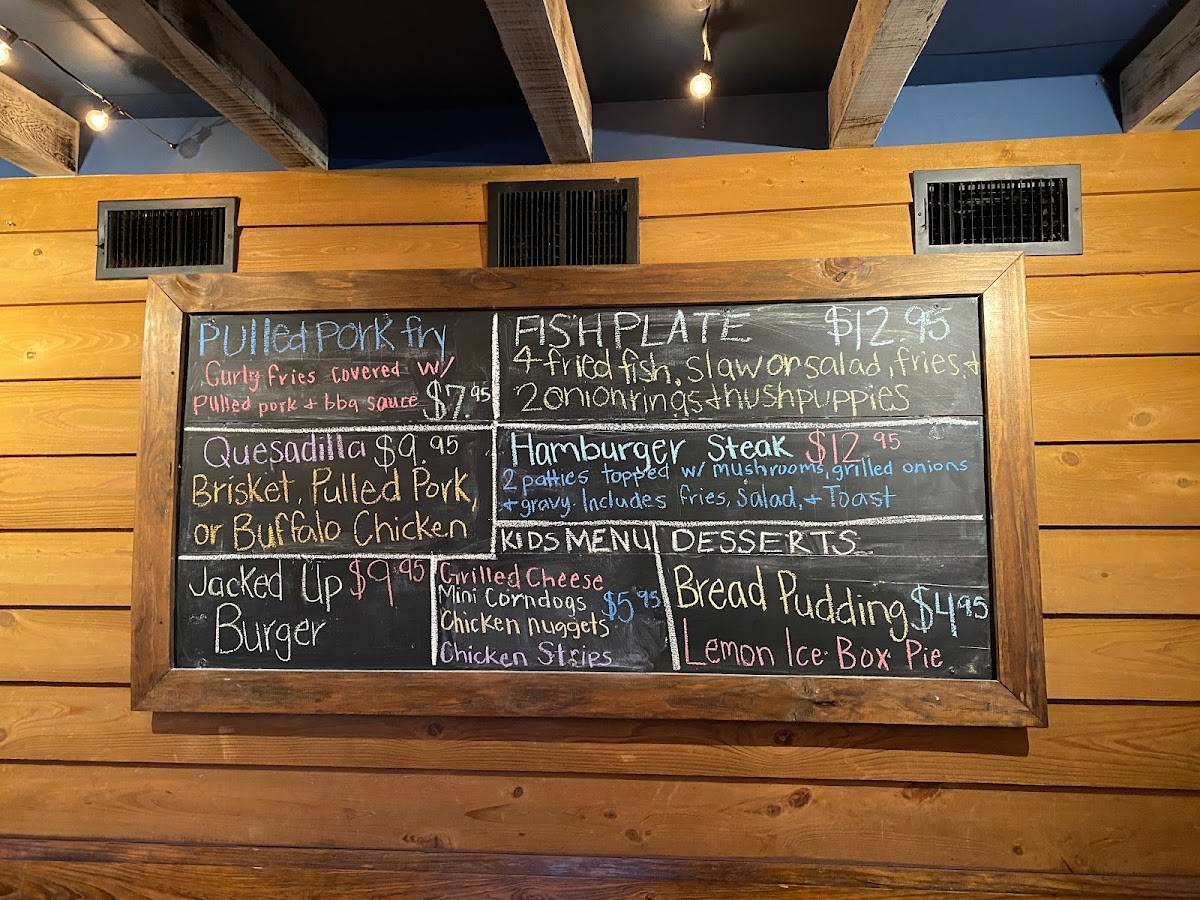 Pulled Pork fry
Curly fries covered w/
Pulled pork + bbq sauce $7.95
Quesadilla $9.95
Brisket, Pulled Pork,
or Buffalo Chicken
Jacked Up $9.95
Burger
FISH PLATE $12.95
4 fried fish, slaw or salad, fries, +
2 onion rings + hushpuppies
Hamburger Steak $12.95
2 patties topped w/ mushrooms, grilled onions
+ gravy. Includes fries, Salad, + Toast
KIDS MENU
Grilled Cheese
Mini Corndogs $5.95
Chicken nuggets
Chicken Strips
DESSERTS
Bread Pudding $4.95
Lemon Ice Box Pie